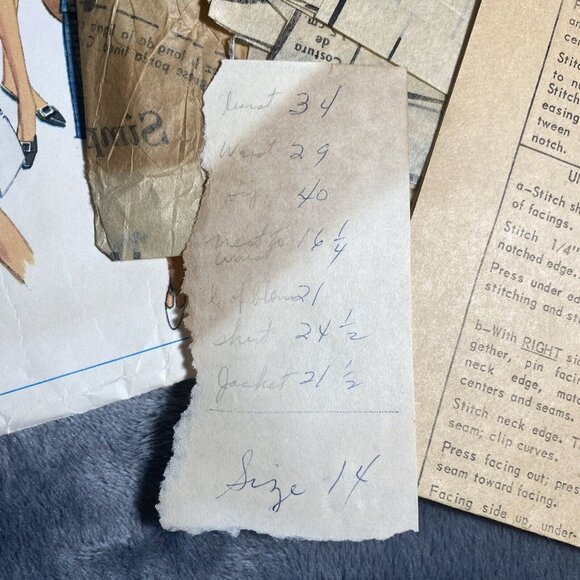 Costura
5 cm
Simp
bust 34
Waist 29
hips 40
neck to 16 1/4
waist
l. of blouse 21
skirt 24 1/2
Jacket 21 1/2
Size 14
and
cen
Stitc
to n
Stitch
easing
tween
notch.
UN
a—Stitch sh
of facings.
Stitch 1/4"
notched edge.
Press under ed
stitching and sti
b—With RIGHT sid
gether, pin facin
neck edge, matc
centers and seams.
Stitch neck edge. Tr
seam; clip curves.
Press facing out; pres
seam toward facing.
Facing side up, under-